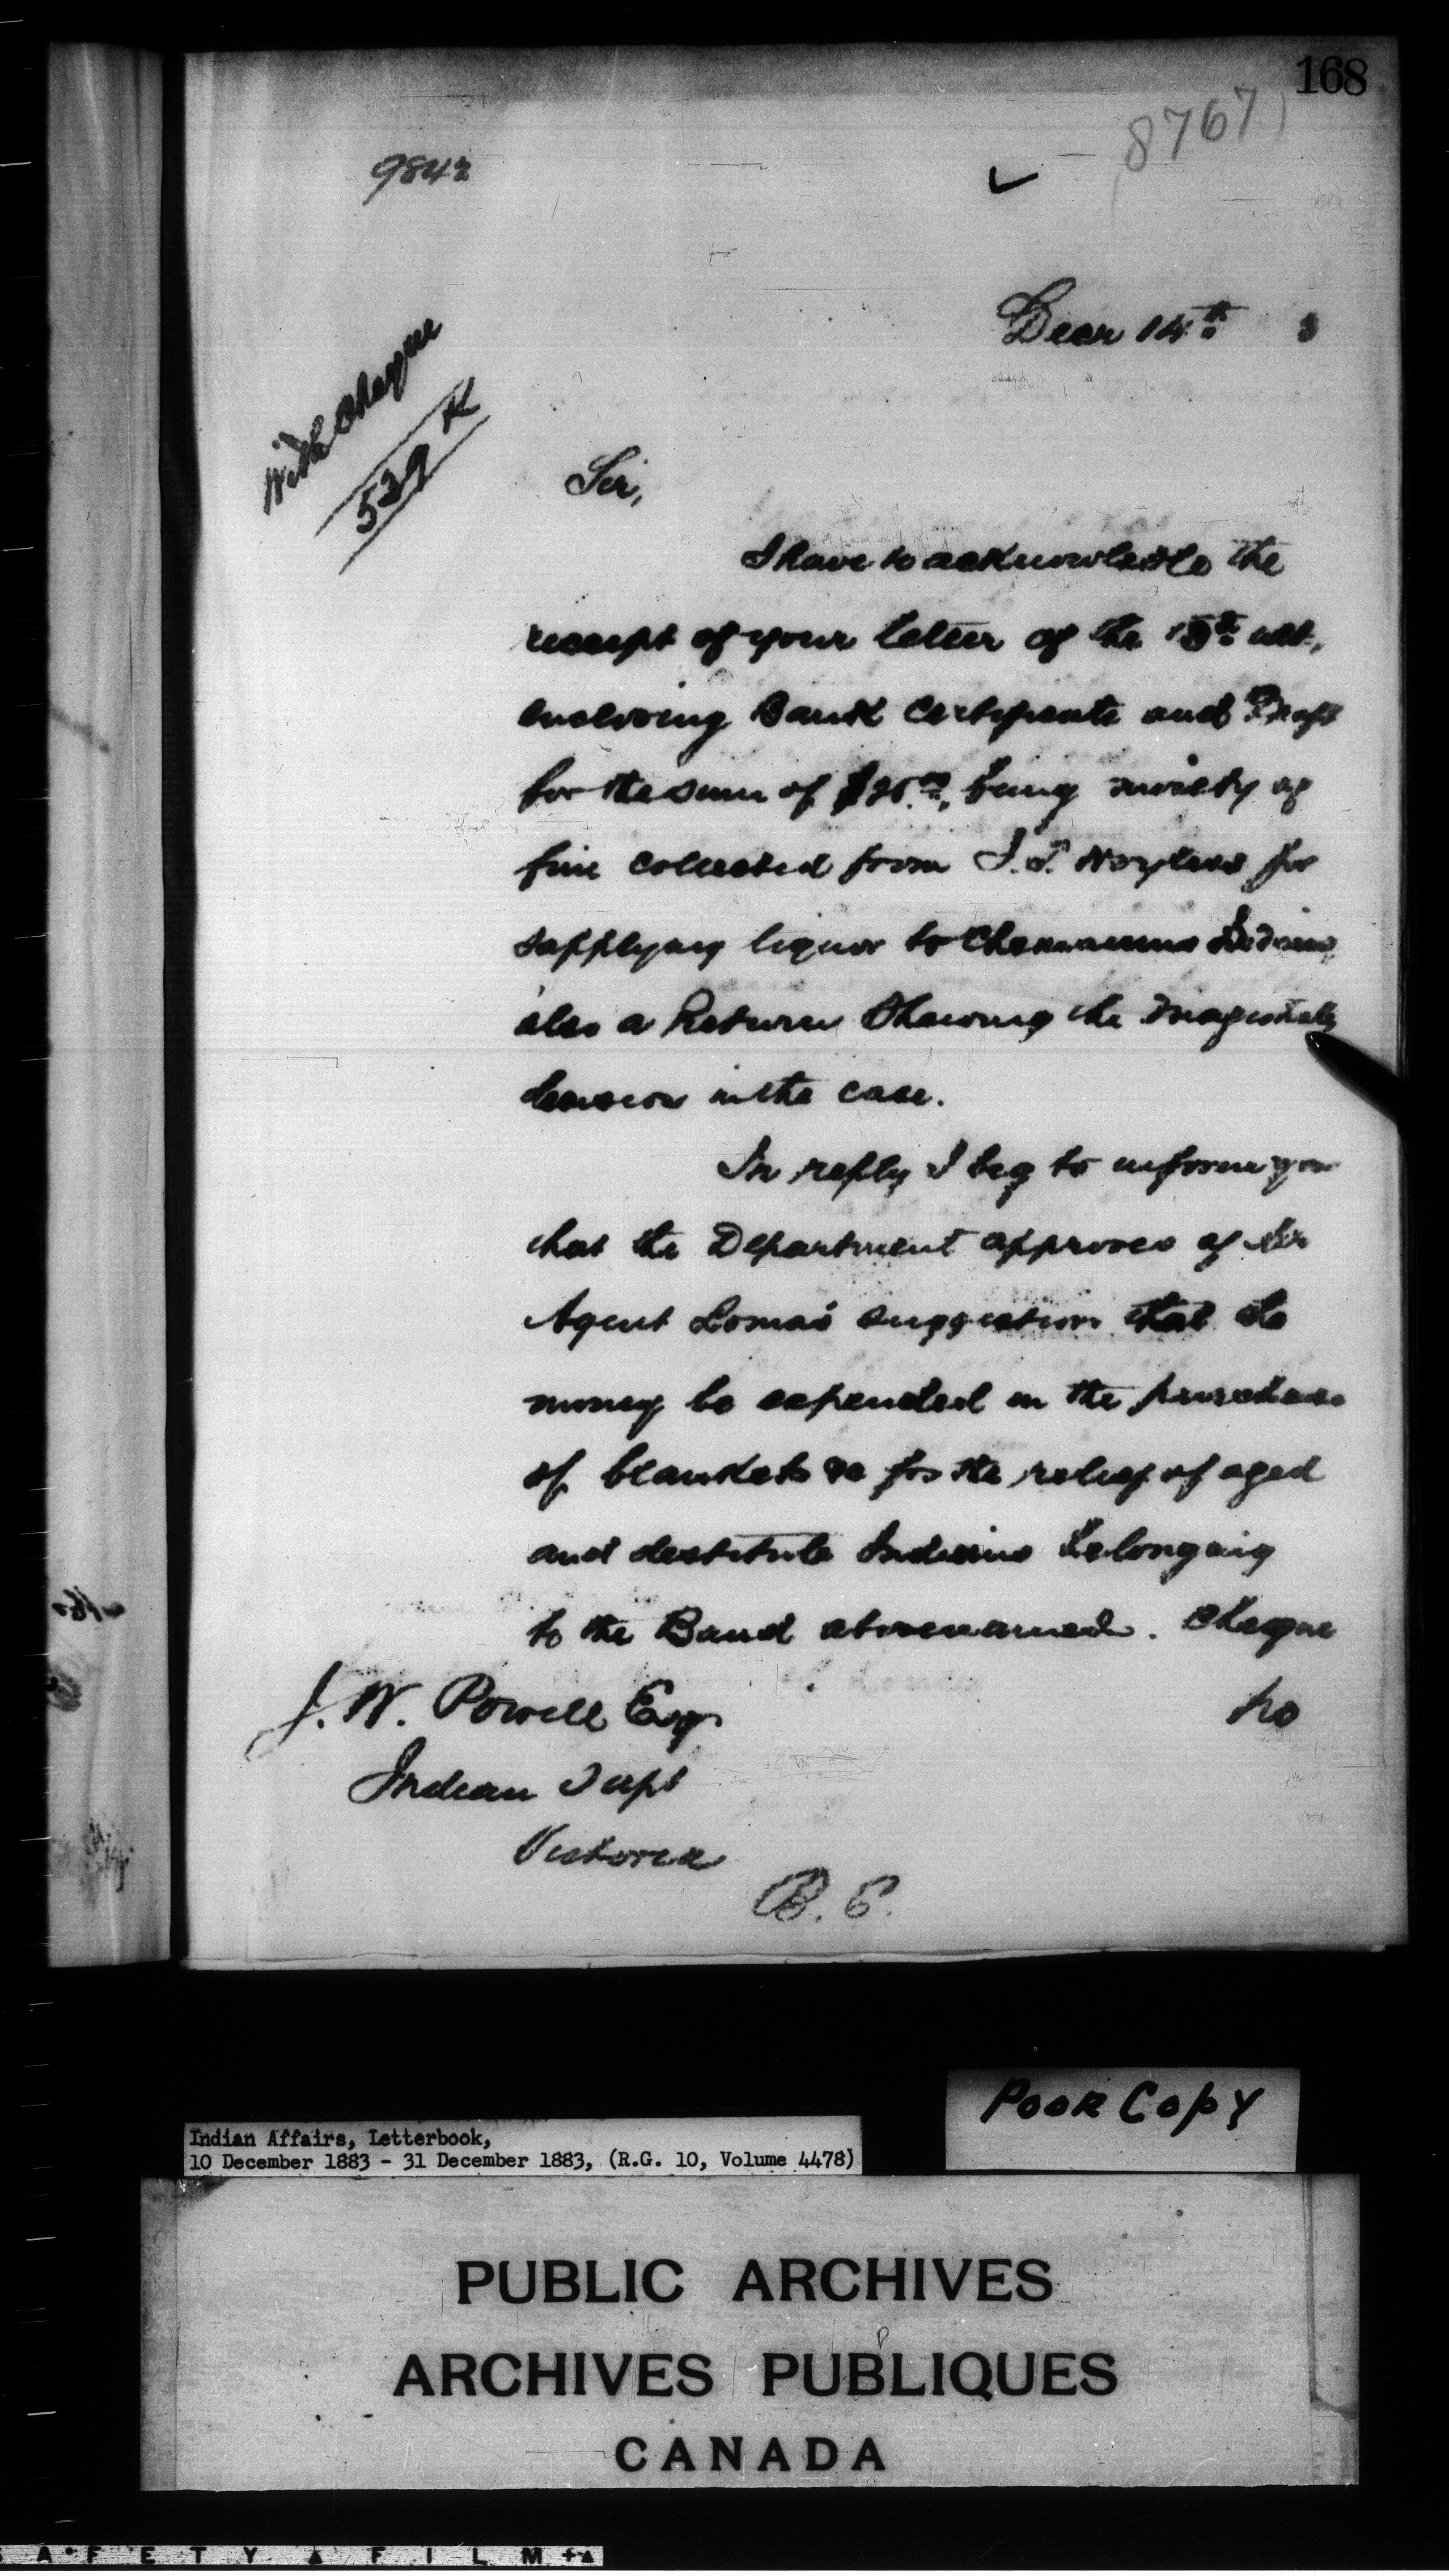 168
8767
9842
Decr 14th 3
With Cheque
539 K
Sir,
I have to acknowledge the
receipt of your letter of the ult.,
enclosing Bank Certificate and Draft
for the sum of being moiety of
fine collected from J. for
supplying liquor to Chemainus Indians,
also a Return Shewing the Magistrates
decision in the case.
In reply I beg to inform you
that the Department approves of
Agent Lomas' suggestion that the
money be expended in the purchase
of blankets &c for the relief of aged
and destitute Indians belonging
to the Band abovenamed. Cheque
J. W. Powell Esq
Indian Supt
Victoria
B. C.
no
POOR COPY
Indian Affairs, Letterbook,
10 December 1883 - 31 December 1883, (R.G. 10, Volume 4478)
PUBLIC ARCHIVES
ARCHIVES PUBLIQUES
CANADA
SAFETY FILM